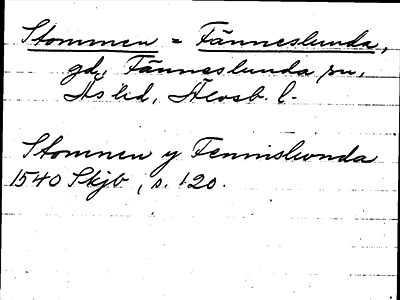 Stommen = Fänneslunda,
gd, Fänneslunda sn,
Ås hd, Älvsb. l.
Stomnen y Fennislwnda
1540 Skjb, s. 120.